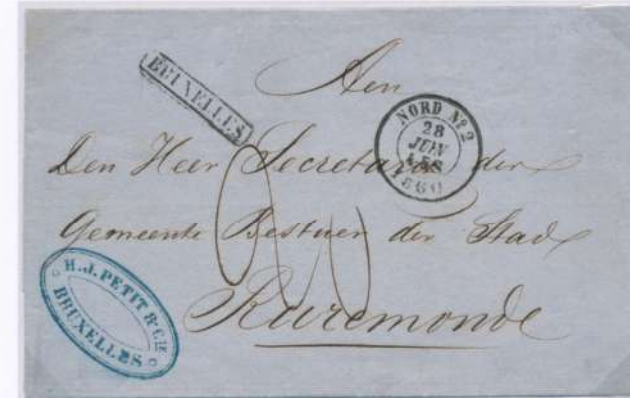 BRUXELLES
Aen
NORD Nº 2
28
JUIN
1860
Den Heer Secretaris der
Gemeente Bestuer der Stad
Ruremonde
H.J. PETIT & Cie
BRUXELLES